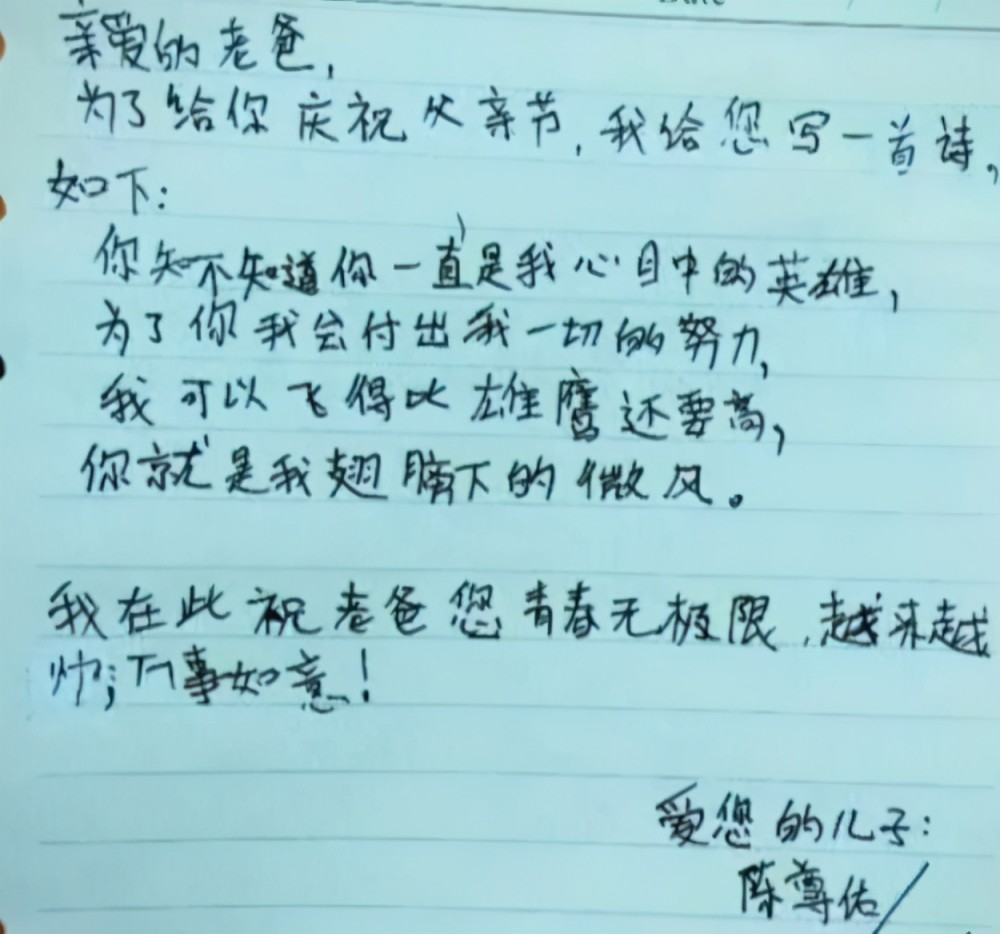 亲爱的老爸,
为了给你庆祝父亲节,我给您写一首诗,
如下:
你知不知道你一直是我心目中的英雄,
为了你我会付出我一切的努力,
我可以飞得比雄鹰还要高,
你就是我翅膀下的微风。
我在此祝老爸您青春无极限,越来越
帅;万事如意!
爱您的儿子:
陈尊佑